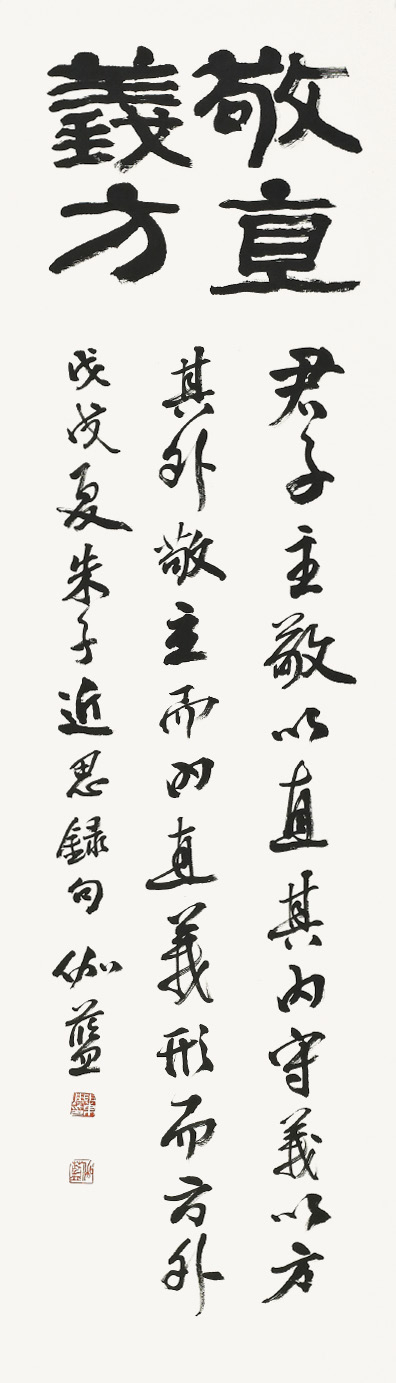 敬直
義方
君子主敬以直其內守義以方
其外敬主而內直義形而方外
戊戌夏朱子近思録句伽藍